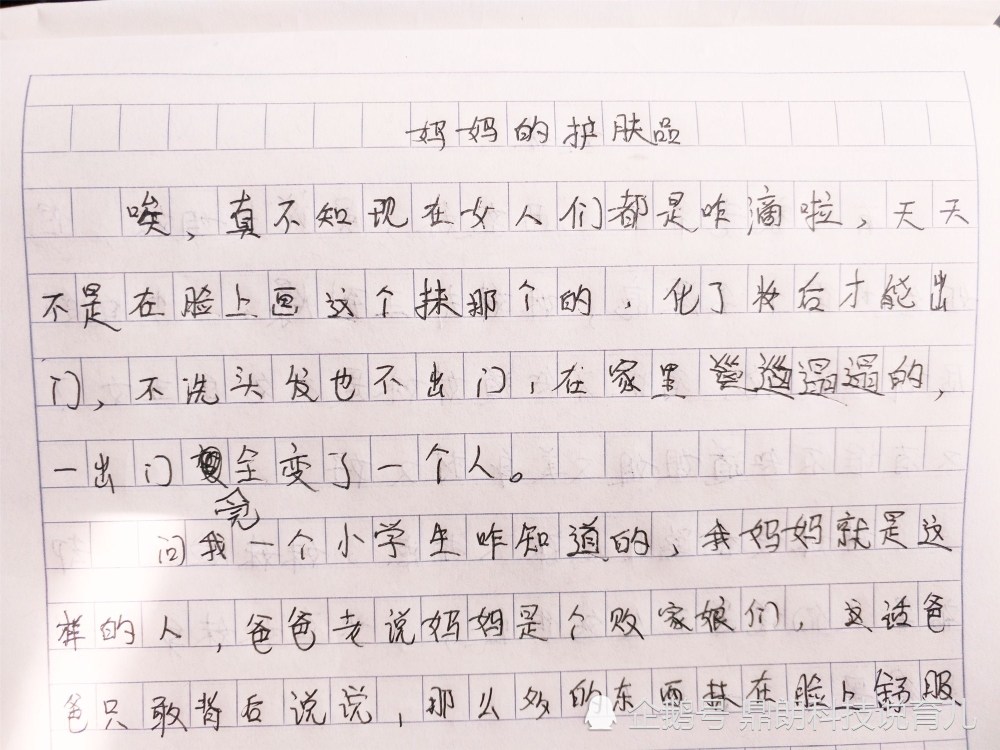 妈妈的护肤品
唉，真不知现在女人们都是咋滴啦，天天
不是在脸上画这个抹那个的，化了妆后才能出
门，不洗头发也不出门，在家里邋邋遢遢的，
一出门完全变了一个人。
问我一个小学生咋知道的，我妈妈就是这
样的人，爸爸老说妈妈是个败家娘们，这话爸
爸只敢背后说说，那么多的东西抹在脸上舒服
企鹅号 鼎朗科技说育儿